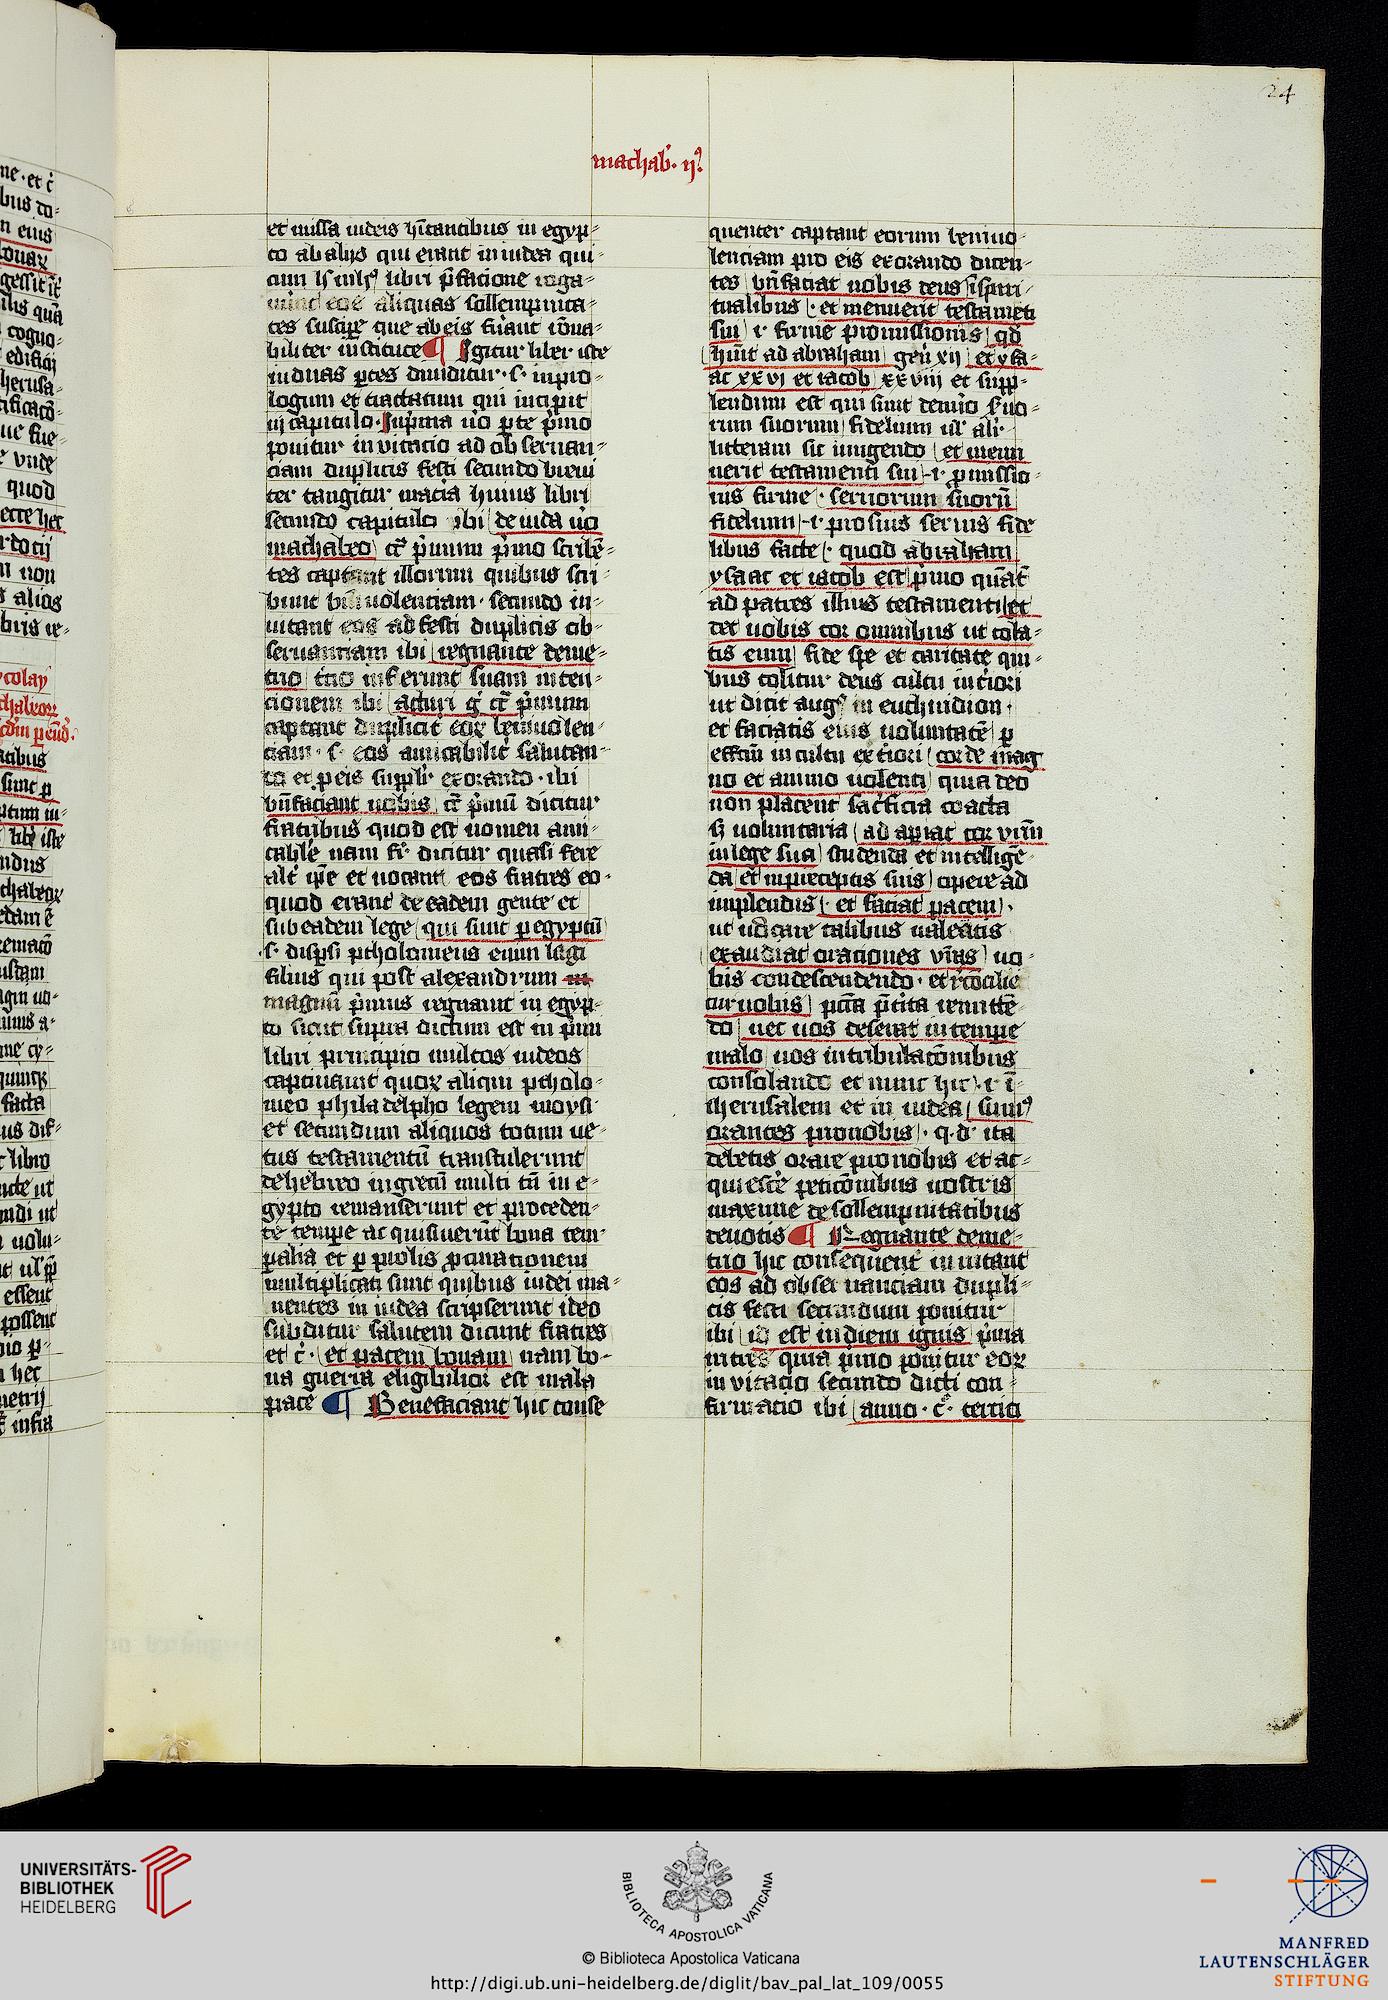 24
machab. ii.
et missa iudeis hitantibus in egyp-
to ab aliis qui erant in iudea qui-
cum hui libri pfacione roga-
eos aliquas sollempnita-
tes suscipe que ab eis fuant rona-
biliter institute ¶ Igitur liber iste
in duas ptes diuiditur. s. in pro-
logum et tractatum qui incipit
iii capitulo. In pma uo pte pmo
ponitur inuitacio ad obseruan-
ciam duplicis festi secundo breui
ter tangitur matia huius libri
secundo capitulo ibi de iuda uo
machabeo ca pimum pmo scribe-
tes captant illorum quibus scri-
bunt beniuolenciam. secundo in-
uitant eos ad festi duplicis ob-
seruanciam ibi regnante deme-
trio tcio inferunt suam inten-
cionem ibi acturi g ca pimum
captant duplicit eor beniuolen
ciam. s. eos amicabilit salutan-
do et p eis suppli exorando. ibi
bnfaciant uobis ca pimu dicitur
fratribus quod est nomen ami-
cabile nam fr dicitur quasi fere
alt ipse et uocant eos fratres eo-
quod erant de eadem gente et
sub eadem lege qui sunt p egyptu
.s. dispsi ptholomeus enim lagi
filius qui post alexandrum in
magnu pimus regnauit in egyp-
to sicut supra dictum est in pimi
libri principio multos iudeos
captiuauit quor aliqui ptholo-
meo philadelpho legem moysi
et secundum aliquos totum ue-
tus testamentu transtulerunt
de hebreo in grecu multi tn in e-
gypto remanserunt et proceden-
te tempe ac quisiuerut bona tem-
palia et p prolis pcurationem
multiplicati sunt quibus iudei ma-
nentes in iudea scripserunt ideo
subditur salutem dicunt fratres
et c. et pacem bonam nam bo-
na guerra eligibilior est mala
pace ¶ Benefaciant hic conse
quenter captant eorum beniuo-
lenciam pro eis exorando dicen-
tes bnfaciat uobis deus i spiri-
tualibus . et meminerit testameti
sui .i. firme promissionis qd
hiuit ad abraham gen xii et ysa-
ac xxvi et iacob xxviii et supp-
lendum est qui sunt deuio suo-
rum suorum fidelium ul ali
litteram sic iungendo et memi
nerit testamenti sui .i. pmissio-
nis firme . seruorum suoru
fidelium .i. prosius seruis fide
libus facte . quod abraham
ysaac et iacob est pmo quat
ad patres illius testamenti et
det uobis cor omnibus ut cola-
tis eum fide spe et caritate qui-
bus colitur deus cultu intiori
ut dicit aug in enchiridion.
et faciatis eius uoluntate p
effcm in cultu extiori corde mag
no et animo uolenti quia deo
non placent sacficia coacta
sz uoluntaria ad apiat cor vrm
in lege sua studenda et intellige
da et in preceptis suis opere ad
implendis . et faciat pacem .
ut uocare talibus ualeatis
exaudiat orationes vras uo-
bis condescendendo . et recocilie
tur uobis pcta ptita remitte
do nec uos deserat in tempe
malo uos in tribulacionibus
consolando et nunc hic .i. i-
iherusalem et in iudea sum
orantes pro uobis . q. d. ita
debetis orare pro nobis et ac-
quiesce peticonibus nostris
maxime de sollempnitatibus
deuotis ¶ Regnante deme-
trio hic consequent inuitant
eos ad obseruanciam dupli-
cis festi secundum ponitur
ibi id est in diem ignis pma
in tres quia pmo ponitur eor
inuitacio secundo dicti con-
firmacio ibi anno . c. tercio
UNIVERSITÄTS-
BIBLIOTHEK
HEIDELBERG
BIBLIOTECA APOSTOLICA VATICANA
© Biblioteca Apostolica Vaticana
http://digi.ub.uni-heidelberg.de/diglit/bav_pal_lat_109/0055
MANFRED
LAUTENSCHLÄGER
STIFTUNG